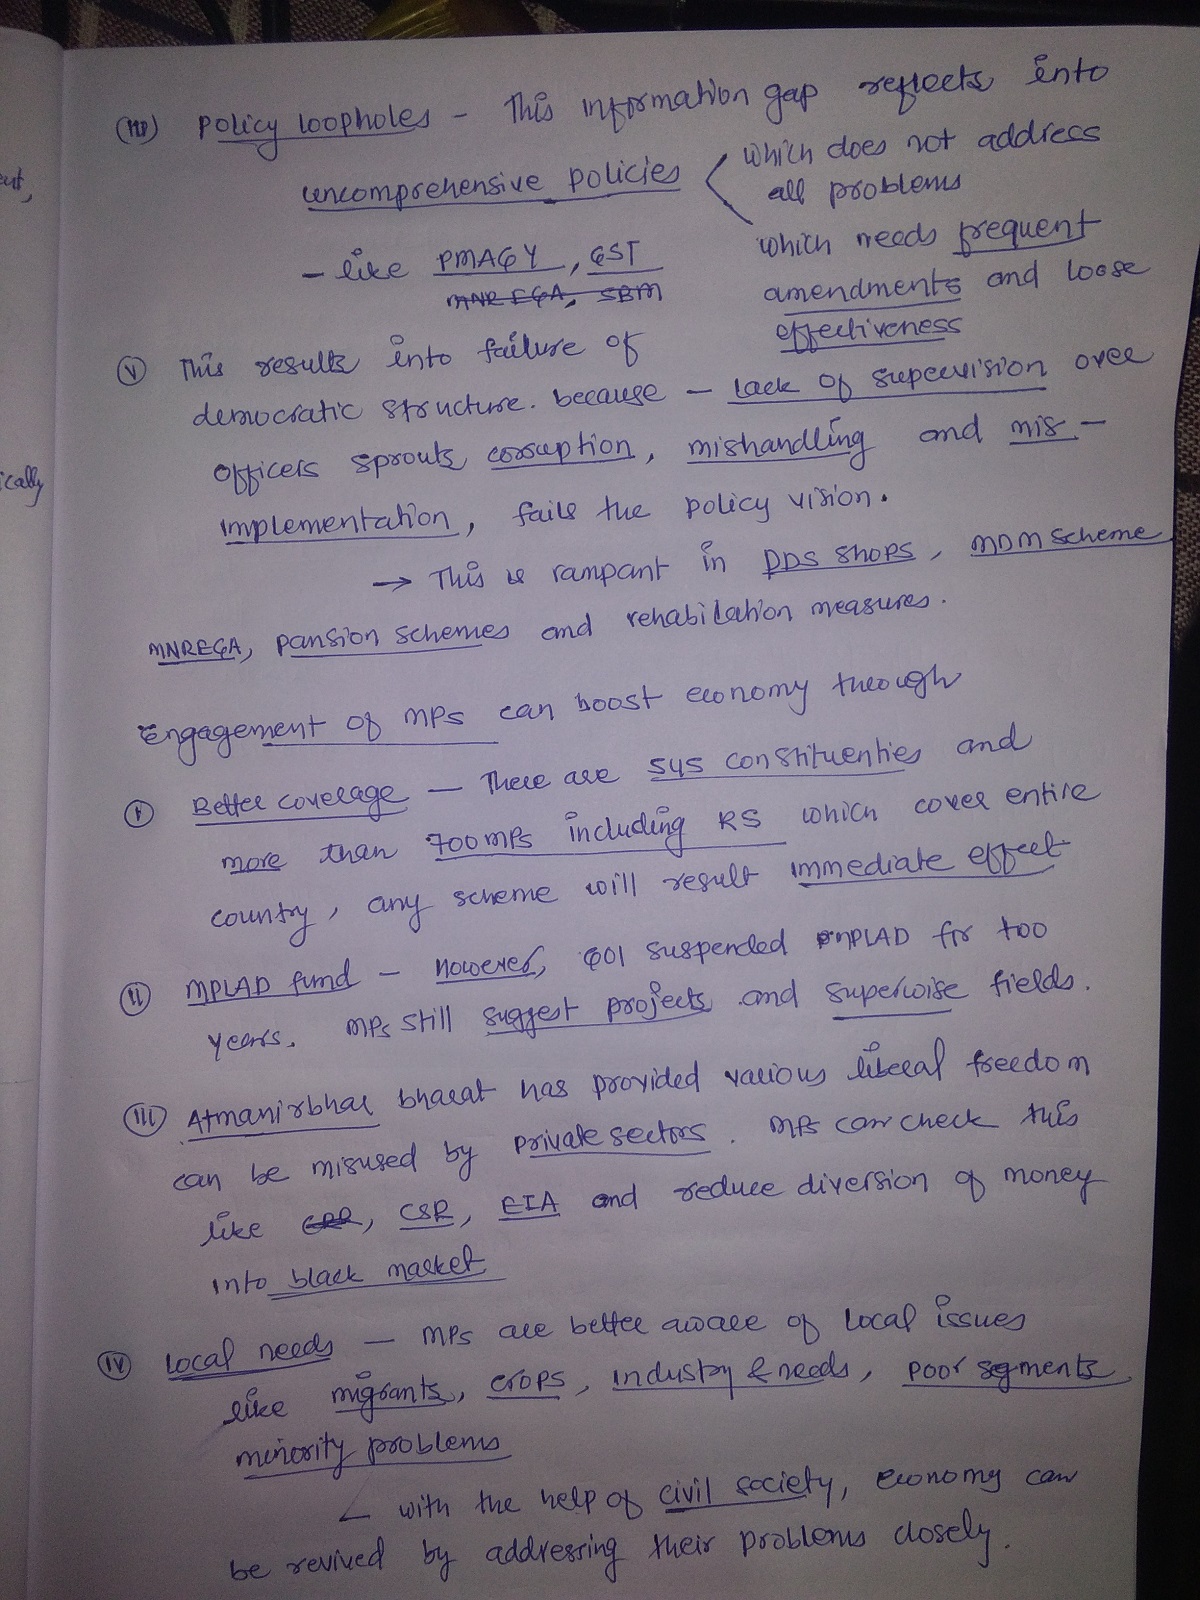 (III) Policy loopholes - This information gap reflects into
uncomprehensive policies < which does not address
all problems
which needs frequent
- like PMAGY, GST
MNREGA, SBM
amendments and loose
effectiveness
(V) This results into failure of
democratic structure. because - lack of supervision over
officers sprouts corruption, mishandling and mis-
implementation, fails the policy vision.
→ This is rampant in PDS shops, MDM scheme
MNREGA, pansion schemes and rehabilation measures.
Engagement of MPs can boost economy through
(I) Better coverage - There are 545 constituenties and
more than 700 MPs including RS which cover entire
country, any scheme will result immediate effect
(II) MPLAD fund - However, GOI suspended MPLAD for too
years. MPs still suggest projects and superwise fields.
(III) Atmanirbhar bharat has provided various liberal freedom
can be misused by private sectors. MPs can check this
like CSR, EIA and reduce diversion of money
into black market
(IV) Local needs - MPs are better aware of local issues
like migrants, crops, industry & needs, poor segments
minority problems
∠ with the help of civil society, economy can
be revived by addressing their problems closely.
eut,
ically